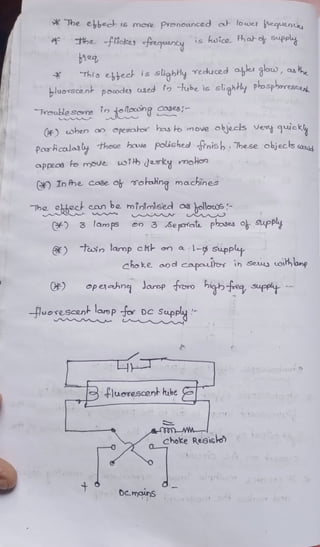 * The effect is more pronounced at lower frequencies
* The flicker frequency is twice that of supply
freq.
* This effect is slightly reduced after glow, as the
fluorescent powder used in tube is slightly phosphorescent
Troublesome in following cases:-
(*) when an operator has to move objects very quickly
Particularly those have polished finish. These objects would
appear to move with jerky motion
(*) In the case of rotating machines
The effect can be minimised as follows:-
(*) 3 lamps on 3 separate phases of supply
(*) Twin lamp ckt on a 1-φ supply
choke and capacitor in series with lamp
(*) operating lamp from high freq. supply --
fluorescent lamp for DC Supply:-
fluorescent tube
Choke Resistor
+ -
Dc.mains